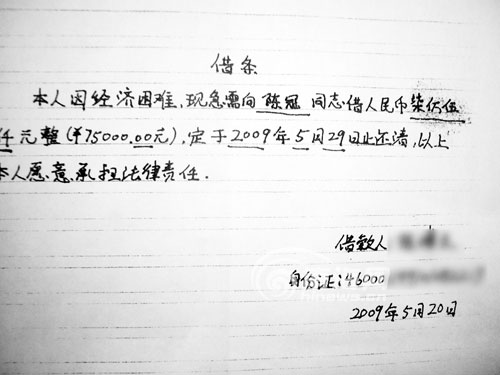 借条
本人因经济困难,现急需向 陈冠 同志借人民币柒伍
仟元整(¥75000.00元),定于2009年5月29日止还清,以上
本人愿意承担法律责任.
借款人
身份证:46000
hinews.cn
2009年5月20日